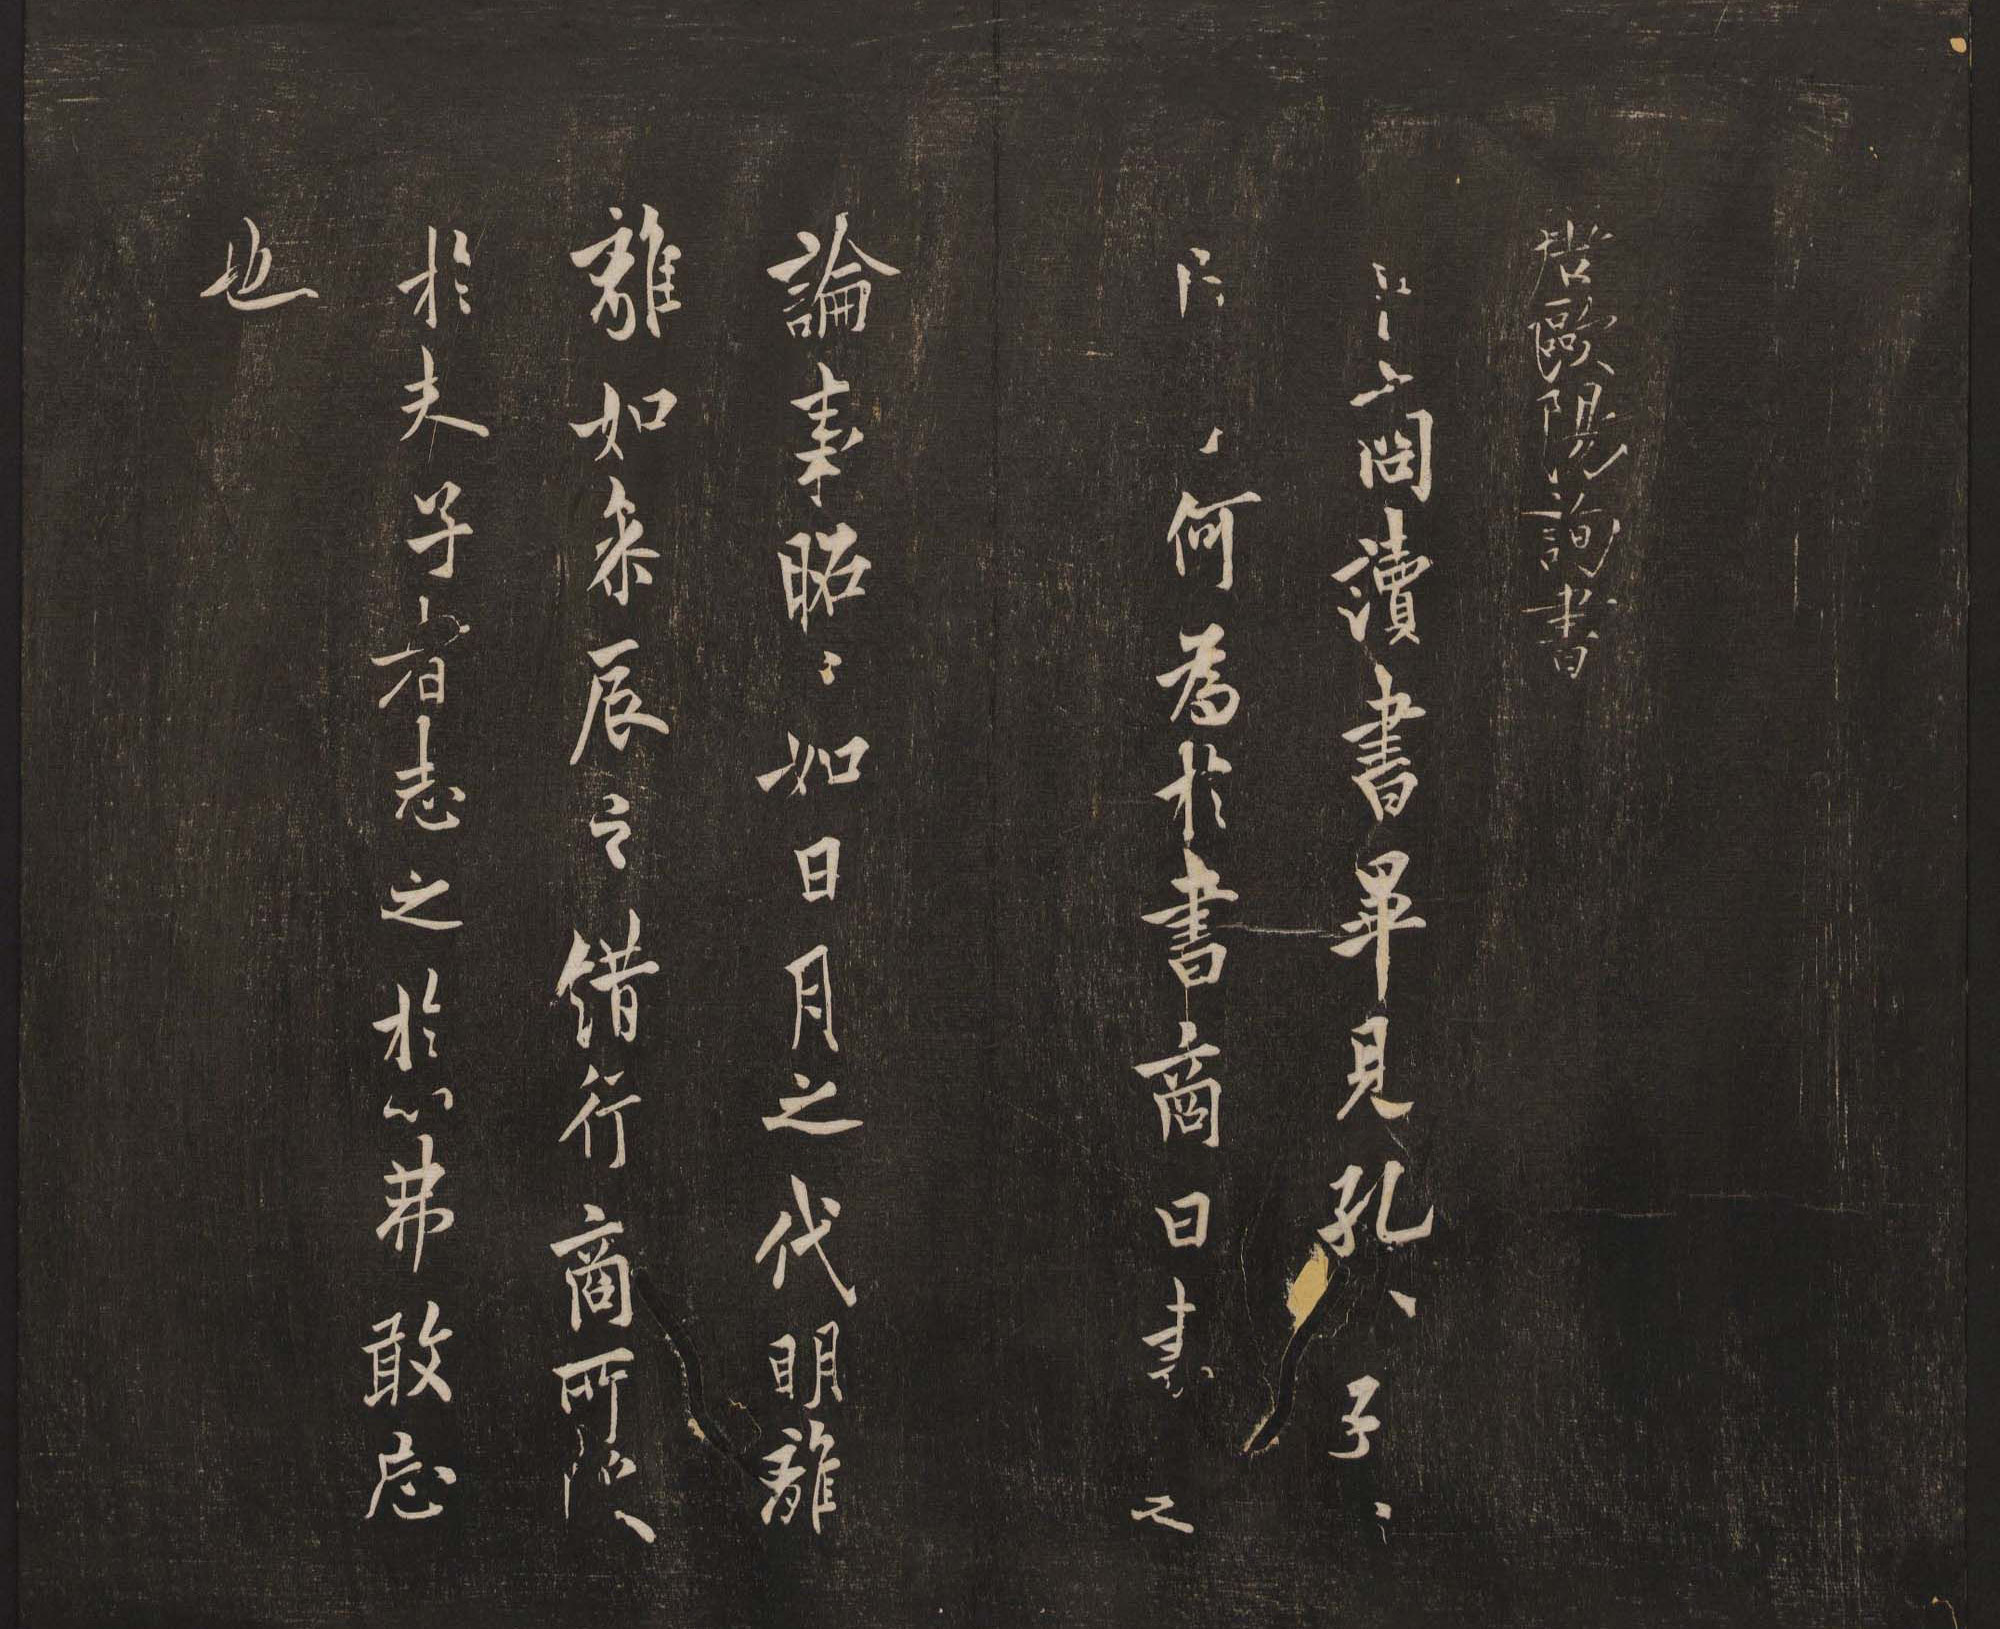 唐歐陽詢書
商讀書畢見孔子
何為於書商曰書之
論事昭〻如日月之代明離
離如參辰之錯行商所
於夫子者志之於心弗敢忘
也